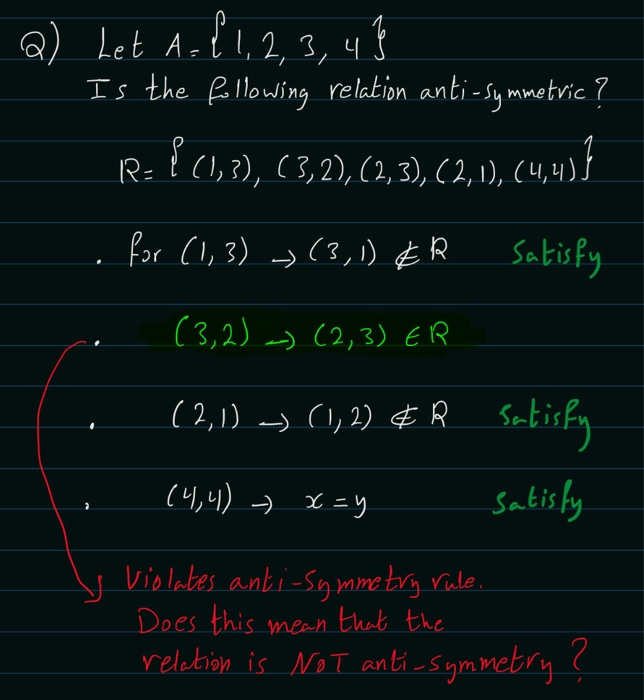 Q) Let A = { 1, 2, 3, 4 }
Is the following relation anti-symmetric ?
R = { (1,3), (3,2), (2,3), (2,1), (4,4) }
. for (1,3) → (3,1) ∉ R Satisfy
. (3,2) → (2,3) ∈ R
. (2,1) → (1,2) ∉ R Satisfy
. (4,4) → x = y Satisfy
Violates anti-symmetry rule.
Does this mean that the
relation is NOT anti-symmetry ?